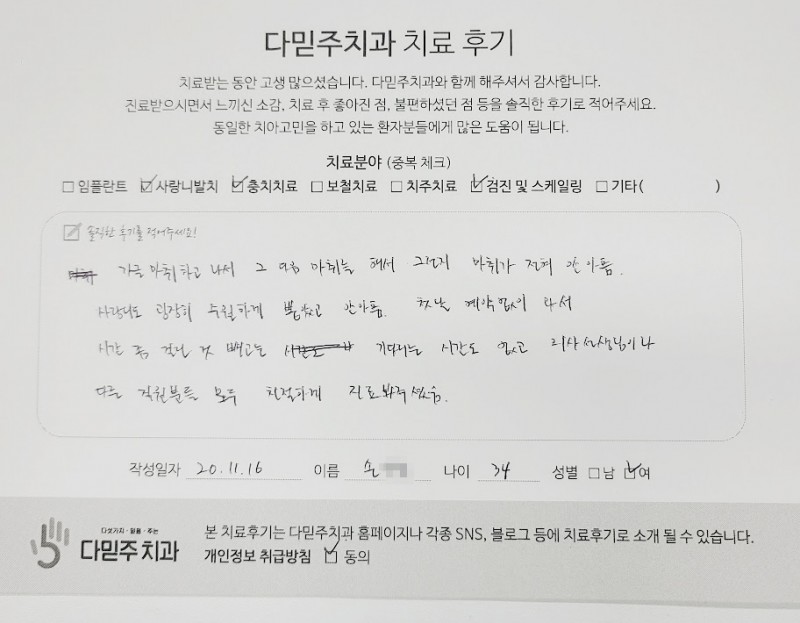 다믿주치과 치료 후기
치료받는 동안 고생 많으셨습니다. 다믿주치과와 함께 해주셔서 감사합니다.
진료받으시면서 느끼신 소감, 치료 후 좋아진 점, 불편하셨던 점 등을 솔직한 후기로 적어주세요.
동일한 치아고민을 하고 있는 환자분들에게 많은 도움이 됩니다.
치료분야 (중복 체크)
□ 임플란트 ☑ 사랑니발치 ☑ 충치치료 □ 보철치료 □ 치주치료 ☑ 검진 및 스케일링 □ 기타( )
솔직한 후기를 적어주세요!
가글마취하고 나서 그 다음 마취를 해서 그런지 마취가 전혀 안 아픔.
사랑니도 굉장히 수월하게 뽑았고 안아픔. 첫날 예약없이 와서
시간 좀 걸린 것 빼고는 기다리는 시간도 없고 의사선생님이나
다른 직원분들 모두 친절하게 진료봐주셨음.
작성일자 20.11.16 이름 손 나이 34 성별 □남 ☑여
다섯가지·믿음·주는
다믿주치과
본 치료후기는 다믿주치과 홈페이지나 각종 SNS, 블로그 등에 치료후기로 소개 될 수 있습니다.
개인정보 취급방침 ☑ 동의